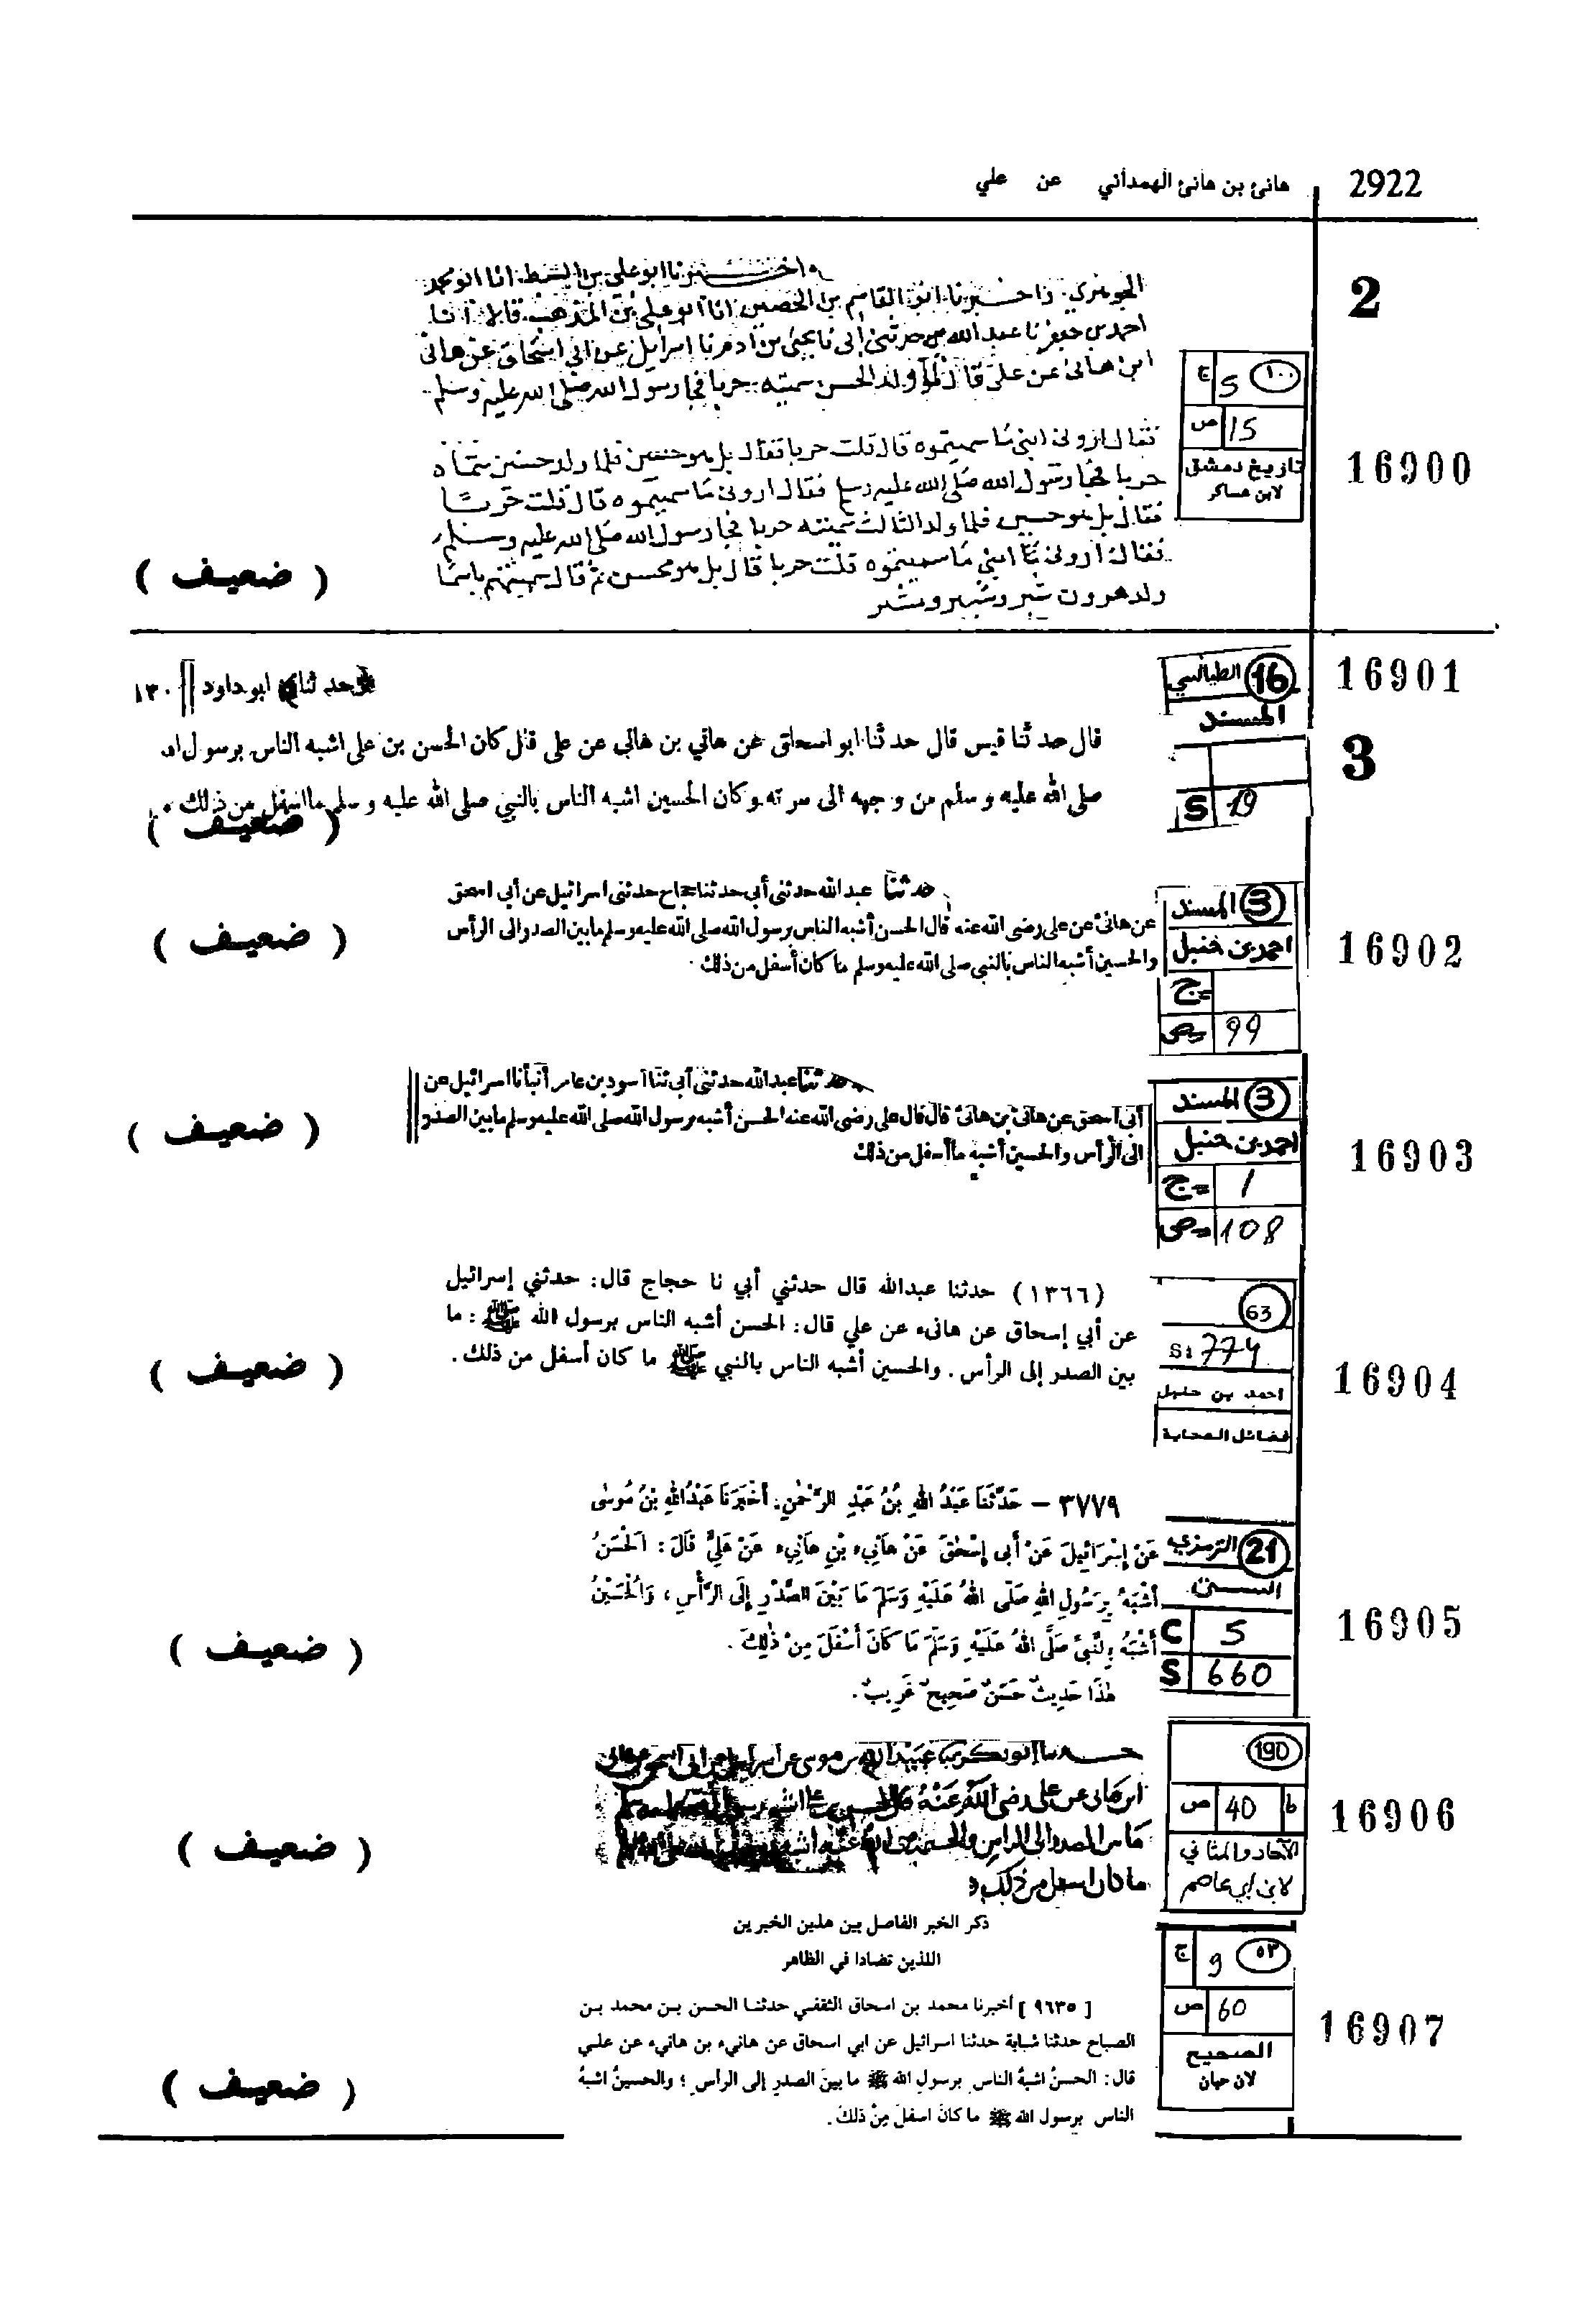 2922
هانئ بن هانئ الهمداني عن علي
2
واخبرنا ابو علي بن السبط انا ابو محمد
الجوهري، واخبرنا ابو القاسم بن الحصين انا ابو علي بن المذهب قالا انا
احمد بن جعفر نا عبد الله حدثني ابي نا يحيى بن ادم نا اسرائيل عن ابي اسحاق عن هانئ
ابن هانئ عن علي قال لما ولد الحسن سميته حربا فجا رسول الله صلى الله عليه وسلم
فقال اروني ابني ما سميتموه قال قلت حربا فقال بل هو حسن فلما ولد حسين سماه
حربا فجا رسول الله صلى الله عليه وسلم فقال اروني ما سميتموه قال قلت حربا
فقال بل هو حسين فلما ولد الثالث سميته حربا فجا رسول الله صلى الله عليه وسلم
فقال اروني ابني ما سميتموه قلت حربا قال بل هو محسن ثم قال سميتهم باسما
ولد هرون شبر وشبير ومشبر
ج 5 ١٠٠
ص 15
تاريخ دمشق
لابن عساكر
16900
( ضعيف )
16901
16 الطيالسي
المسند
S 19
حدثنا ابو داود ١٣٠
3
قال حدثنا قيس قال حدثنا ابو اسحاق عن هاني بن هاني عن علي قال كان الحسن بن علي اشبه الناس برسول الله
صلى الله عليه وسلم من وجهه الى سرته وكان الحسين اشبه الناس بالنبي صلى الله عليه وسلم ما اسفل من ذلك
( ضعيف )
حدثنا عبد الله حدثنى أبى حدثنا حجاج حدثنى اسرائيل عن أبي اسحق
عن هانئ عن على رضى الله عنه قال الحسن أشبه الناس برسول الله صلى الله عليه وسلم ما بين الصدر الى الرأس
والحسين أشبه الناس بالنبى صلى الله عليه وسلم ما كان أسفل من ذلك
3 المسند
احمد بن حنبل
ج
ص 99
16902
( ضعيف )
حدثنا عبد الله حدثنى أبى ثنا أسود بن عامر أنبأنا اسرائيل عن
أبى اسحق عن هانئ بن هانئ قال قال على رضى الله عنه الحسن أشبه برسول الله صلى الله عليه وسلم ما بين الصدر
الى الرأس والحسين أشبه ما أسفل من ذلك
3 المسند
احمد بن حنبل
ج 1
ص 108
16903
( ضعيف )
(١٣٦٦) حدثنا عبدالله قال حدثني أبي نا حجاج قال: حدثني إسرائيل
عن أبي إسحاق عن هانىء عن علي قال: الحسن أشبه الناس برسول الله ﷺ: ما
بين الصدر إلى الرأس. والحسين أشبه الناس بالنبي ﷺ ما كان أسفل من ذلك.
63
S: 774
احمد بن حنبل
فضائل الصحابة
16904
( ضعيف )
٣٧٧٩ – حَدَّثَنَا عَبْدُ اللهِ بْنُ عَبْدِ الرَّحْمٰنِ. أَخْبَرَنَا عُبَيْدُ اللهِ بْنُ مُوسٰى
عَنْ إِسْرَائِيلَ عَنْ أَبِى إِسْحٰقَ عَنْ هَانِىءِ بْنِ هَانِىءٍ عَنْ عَلِىٍّ قَالَ: الْحَسَنُ
أَشْبَهُ بِرَسُولِ اللهِ صَلَّى اللهُ عَلَيْهِ وَسَلَّمَ مَا بَيْنَ الصَّدْرِ إِلَى الرَّأْسِ، وَالْحُسَيْنُ
أَشْبَهُ بِالنَّبِىِّ صَلَّى اللهُ عَلَيْهِ وَسَلَّمَ مَا كَانَ أَسْفَلَ مِنْ ذٰلِكَ.
هٰذَا حَدِيثٌ حَسَنٌ صَحِيحٌ غَرِيبٌ.
21 الترمذي
السنن
C 5
S 660
16905
( ضعيف )
حدثنا ابو بكر نا عبيد الله بن موسى عن اسرائيل عن ابي اسحق عن هانئ
ابن هانى عن على رضى الله عنه قال الحسن بن علي اشبه
ما بين الصدر الى الراس والحسين
ما كان اسفل من ذلك
190
ص 40 ط
الآحاد والمثاني
لابن ابي عاصم
16906
( ضعيف )
ذكر الخبر الفاصل بين هذين الخبرين
اللذين تضادا في الظاهر
[ ٩٦٣٥ ] أخبرنا محمد بن اسحاق الثقفي حدثنا الحسن بن محمد بن
الصباح حدثنا شبابة حدثنا اسرائيل عن ابي اسحاق عن هانيء بن هانيء عن علي
قال: الحسنُ اشبهُ الناس برسولِ الله ﷺ ما بينَ الصدرِ إلى الرأسِ؛ والحسينُ اشبهُ
الناس برسول الله ﷺ ما كانَ اسفلَ مِنْ ذلكَ.
ج 9 ٥٣
ص 60
الصحيح
لابن حبان
16907
( ضعيف )